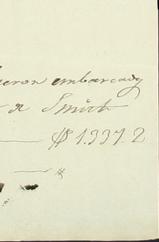 eron embarcady
a Smith
$ 1.337.2